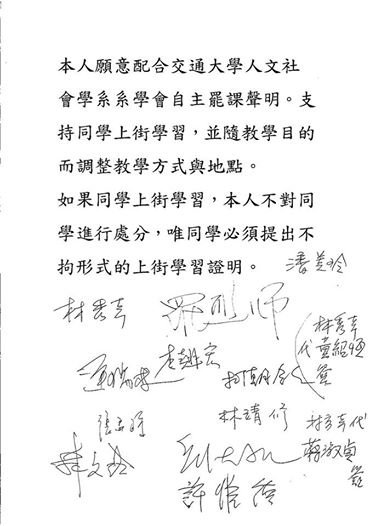 本人願意配合交通大學人文社
會學系系學會自主罷課聲明。支
持同學上街學習，並隨教學目的
而調整教學方式與地點。
如果同學上街學習，本人不對同
學進行處分，唯同學必須提出不
拘形式的上街學習證明。
潘美玲
林秀幸
羅烈師
林秀幸
代黃紹恆
簽
林靖修
林秀幸代
蔣淑貞
簽